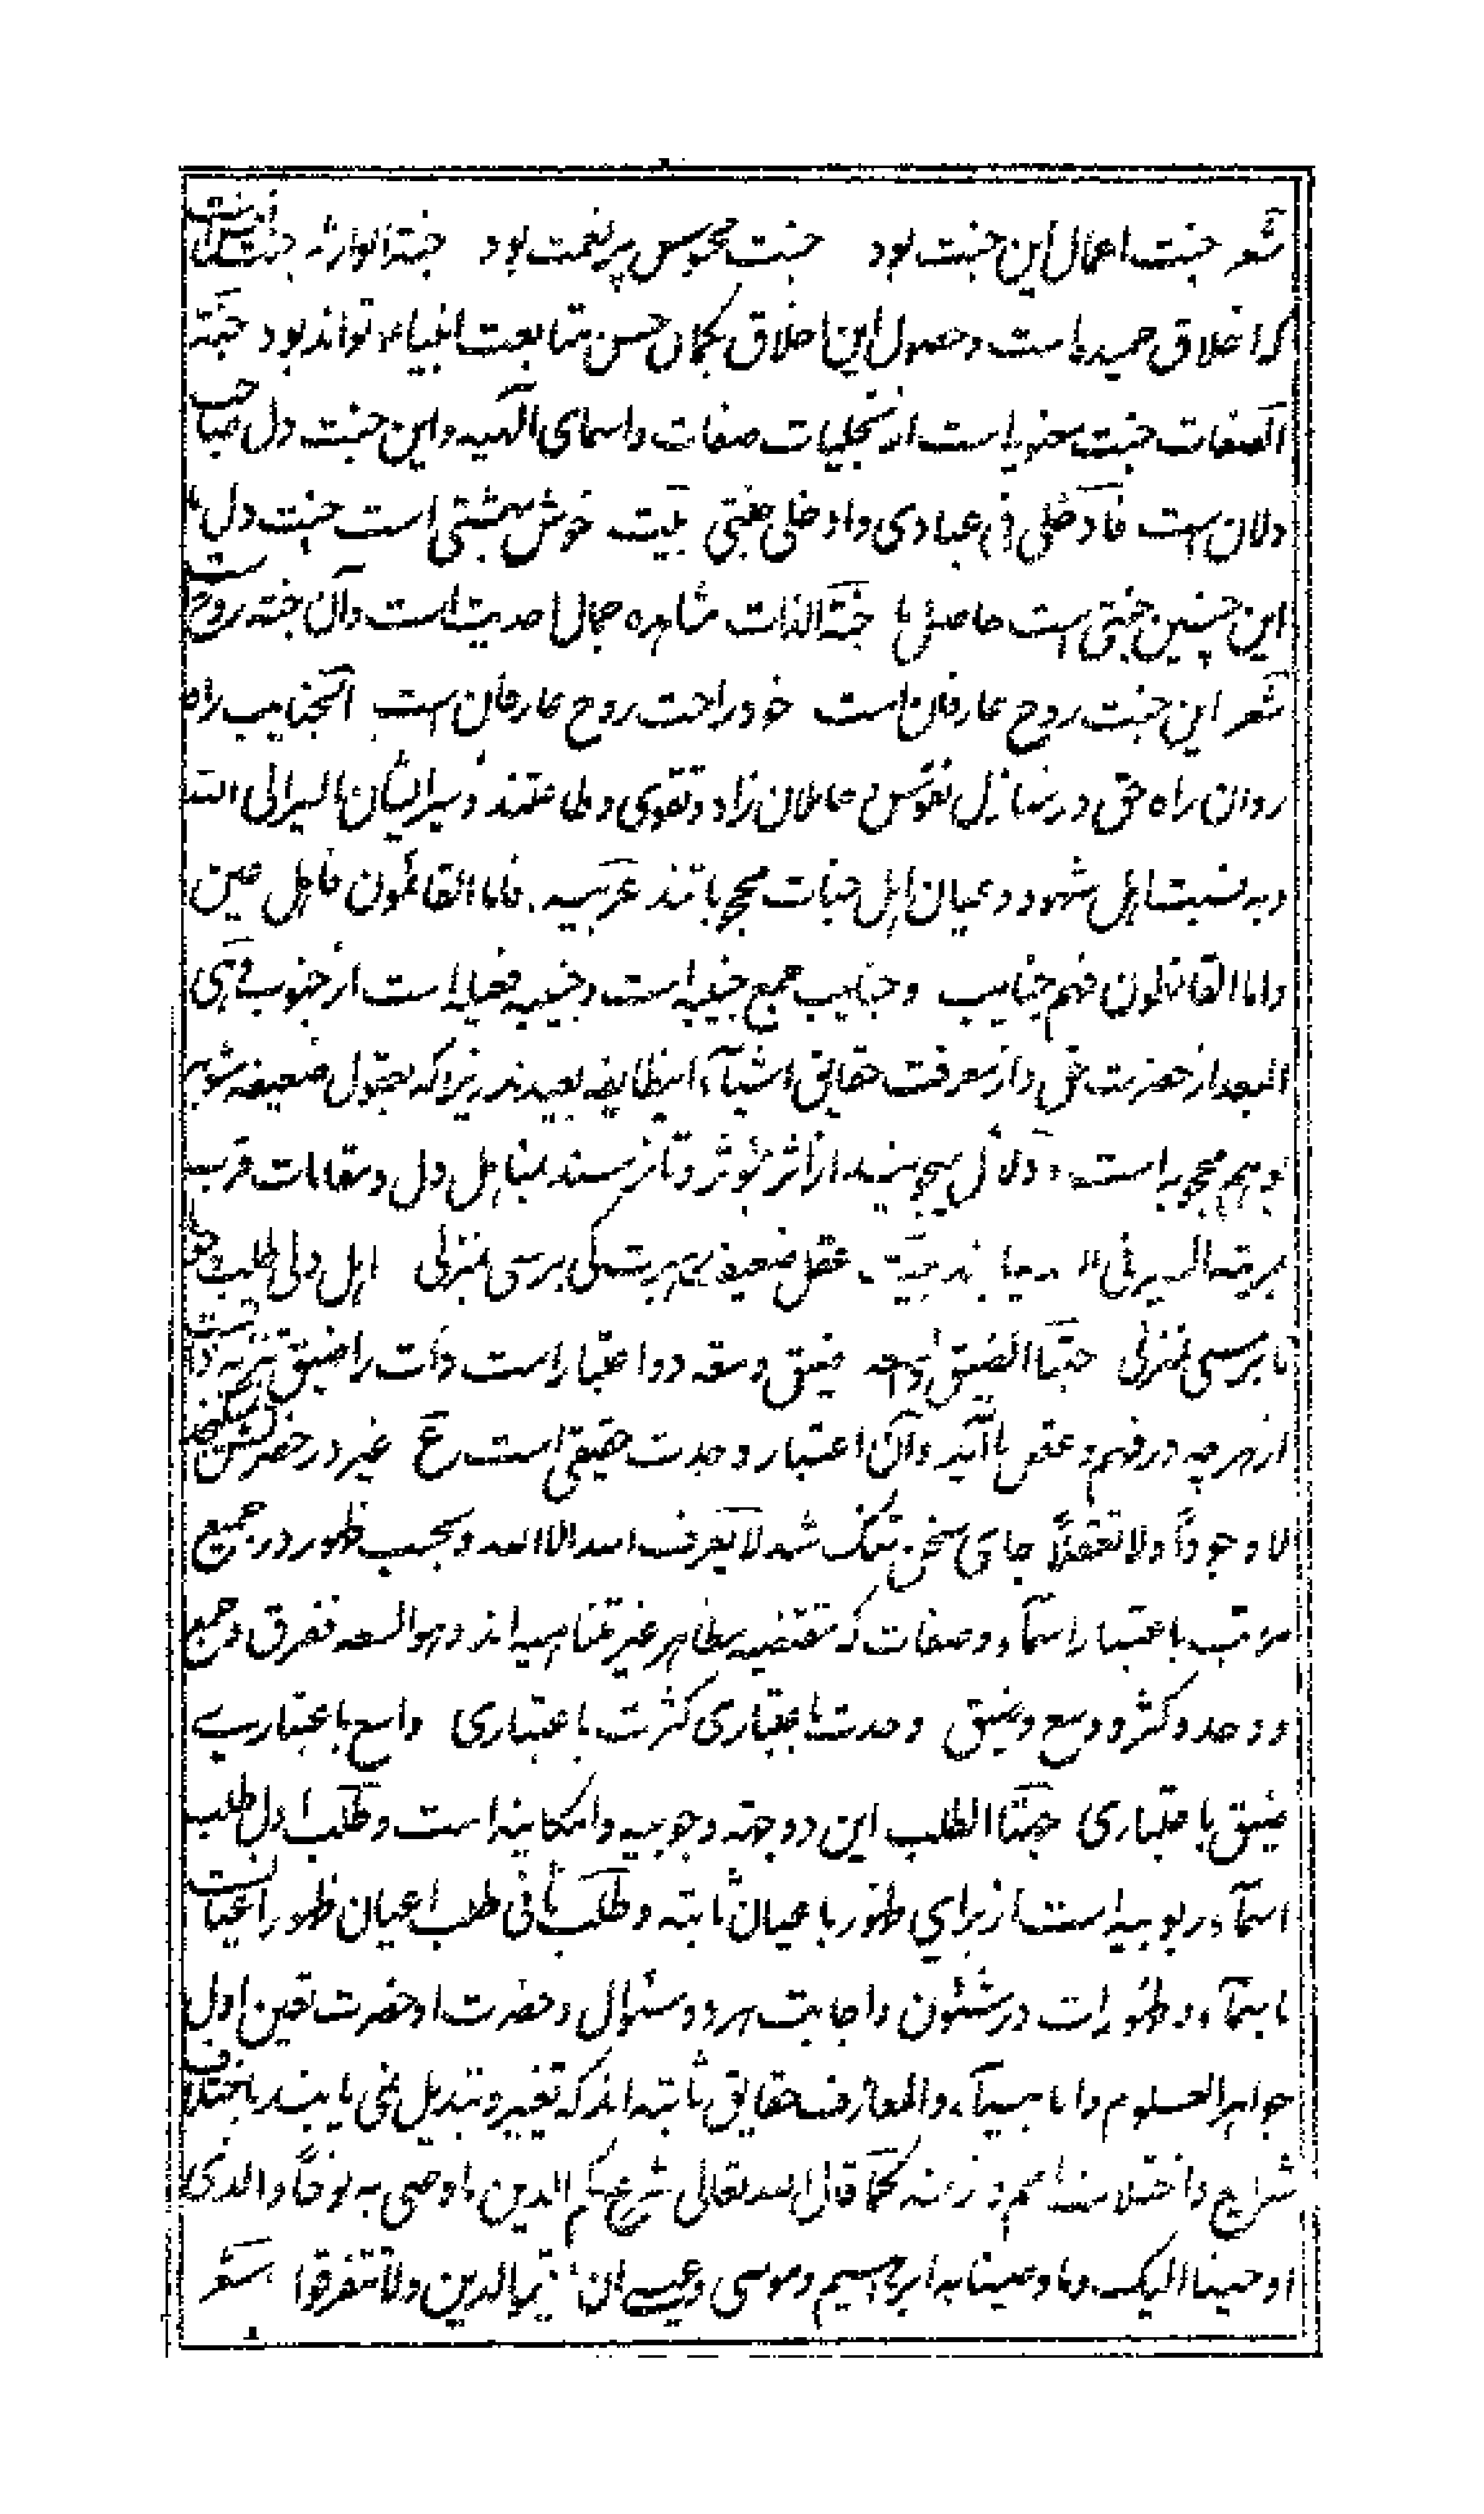 شعر جنت اعمال این جنت بود جنت محسوس پر نعمت بود جنة الوراثه جنت نفس است
که اخلاق حمیده است و حصول این اخلاق بکمال حسن متابعت انبیاء تواند بود جنة
الصفات جنت معنویه است از تجلیات صفات و اسمای الهیه و این جنت دل صاحب
دلان است فادخلی فی عبادی و ادخلی جنتی بیت خوش بهشتی است جنت دل ما
این چنین جنتی است حاصل ما جنة الذات مشاهده جمال احدیت است و آن جنة روح است
شعر این جنت روح عارفان است خود راحت روح عارفان است الجنایب راه
روان راه حق در منازل نفوس و حاملان زاد و تقوی و طاعتند و سیر ایشان تا السیر الی الله
و به نسبت اهل شهود و عیان اهل جنات محجوبانند عربیه فاما القائمون فاهل عین
و اما القائلون فهم جنایب و جنایب جمع جنیبه است و جنیبه فعیله است از جنوب و هی
البعد از حضرت حق و از معرفت حقایق اشیاء اینطایفه بعیدند زیرا که بعقول ضعیفه مشوبه
بوهم محجوبه است و دلائل میجویند از اثر مؤثر و تا نرسند بمنازل دل و مقامات قرب
بمرتبه السیر فی الله نیابند بیت عقل ضعیف رهبرت کی برسی بمنزلی اهل دلی طلب بجو
تا برسی بمنزلی جهتا الضیق والسعه ضیق و سعه دو اعتبار است ذات را ضیق تنزیه ذاتست
از هرچه در فهم و عقل ما آید و آن اعتبار وحدت حقیقی است ع غیر در حضرتش نمیگنجد
لا وجوداً ولا تعقلاً جای سخن تنگ شد لا یعرف الله الا الله و بحسب ظهور در جمیع
مراتب باعتبار اسماء و صفات که مقتضیه مظاهر غیر متناهیه اند و هو السعه ففرق و جمع
و وحد و کثر و وسع و ضیق وحدت باعتباری کثرت باعتباری واسع باعتباری
ضیق باعتباری جهتا الطلب این دو جهة وجوبیه و امکانیه است و طلب اول طلب
اسماء ربوبیه است از برای ظهور باعیان ثابته و طلب ثانی طلب اعیان ظهور اعیانست
باسماء و ظهورات در شئون و اجابت هر دو سئوال و حضرت او حضرت تعین اول
جواهر العلوم والانبیاء والمعارف حقایق ثابته اند که تغییر و تبدیل نمی یابند باختلاف
شرایع و اختلاف امم و زمنه کما قال الله تعالی شرع لکم الدین ما وصی به نوحاً والذی
اوحینا الیک وما وصینا به ابراهیم وموسی وعیسی ان اقیموا الدین ولا تتفرقوا شعر